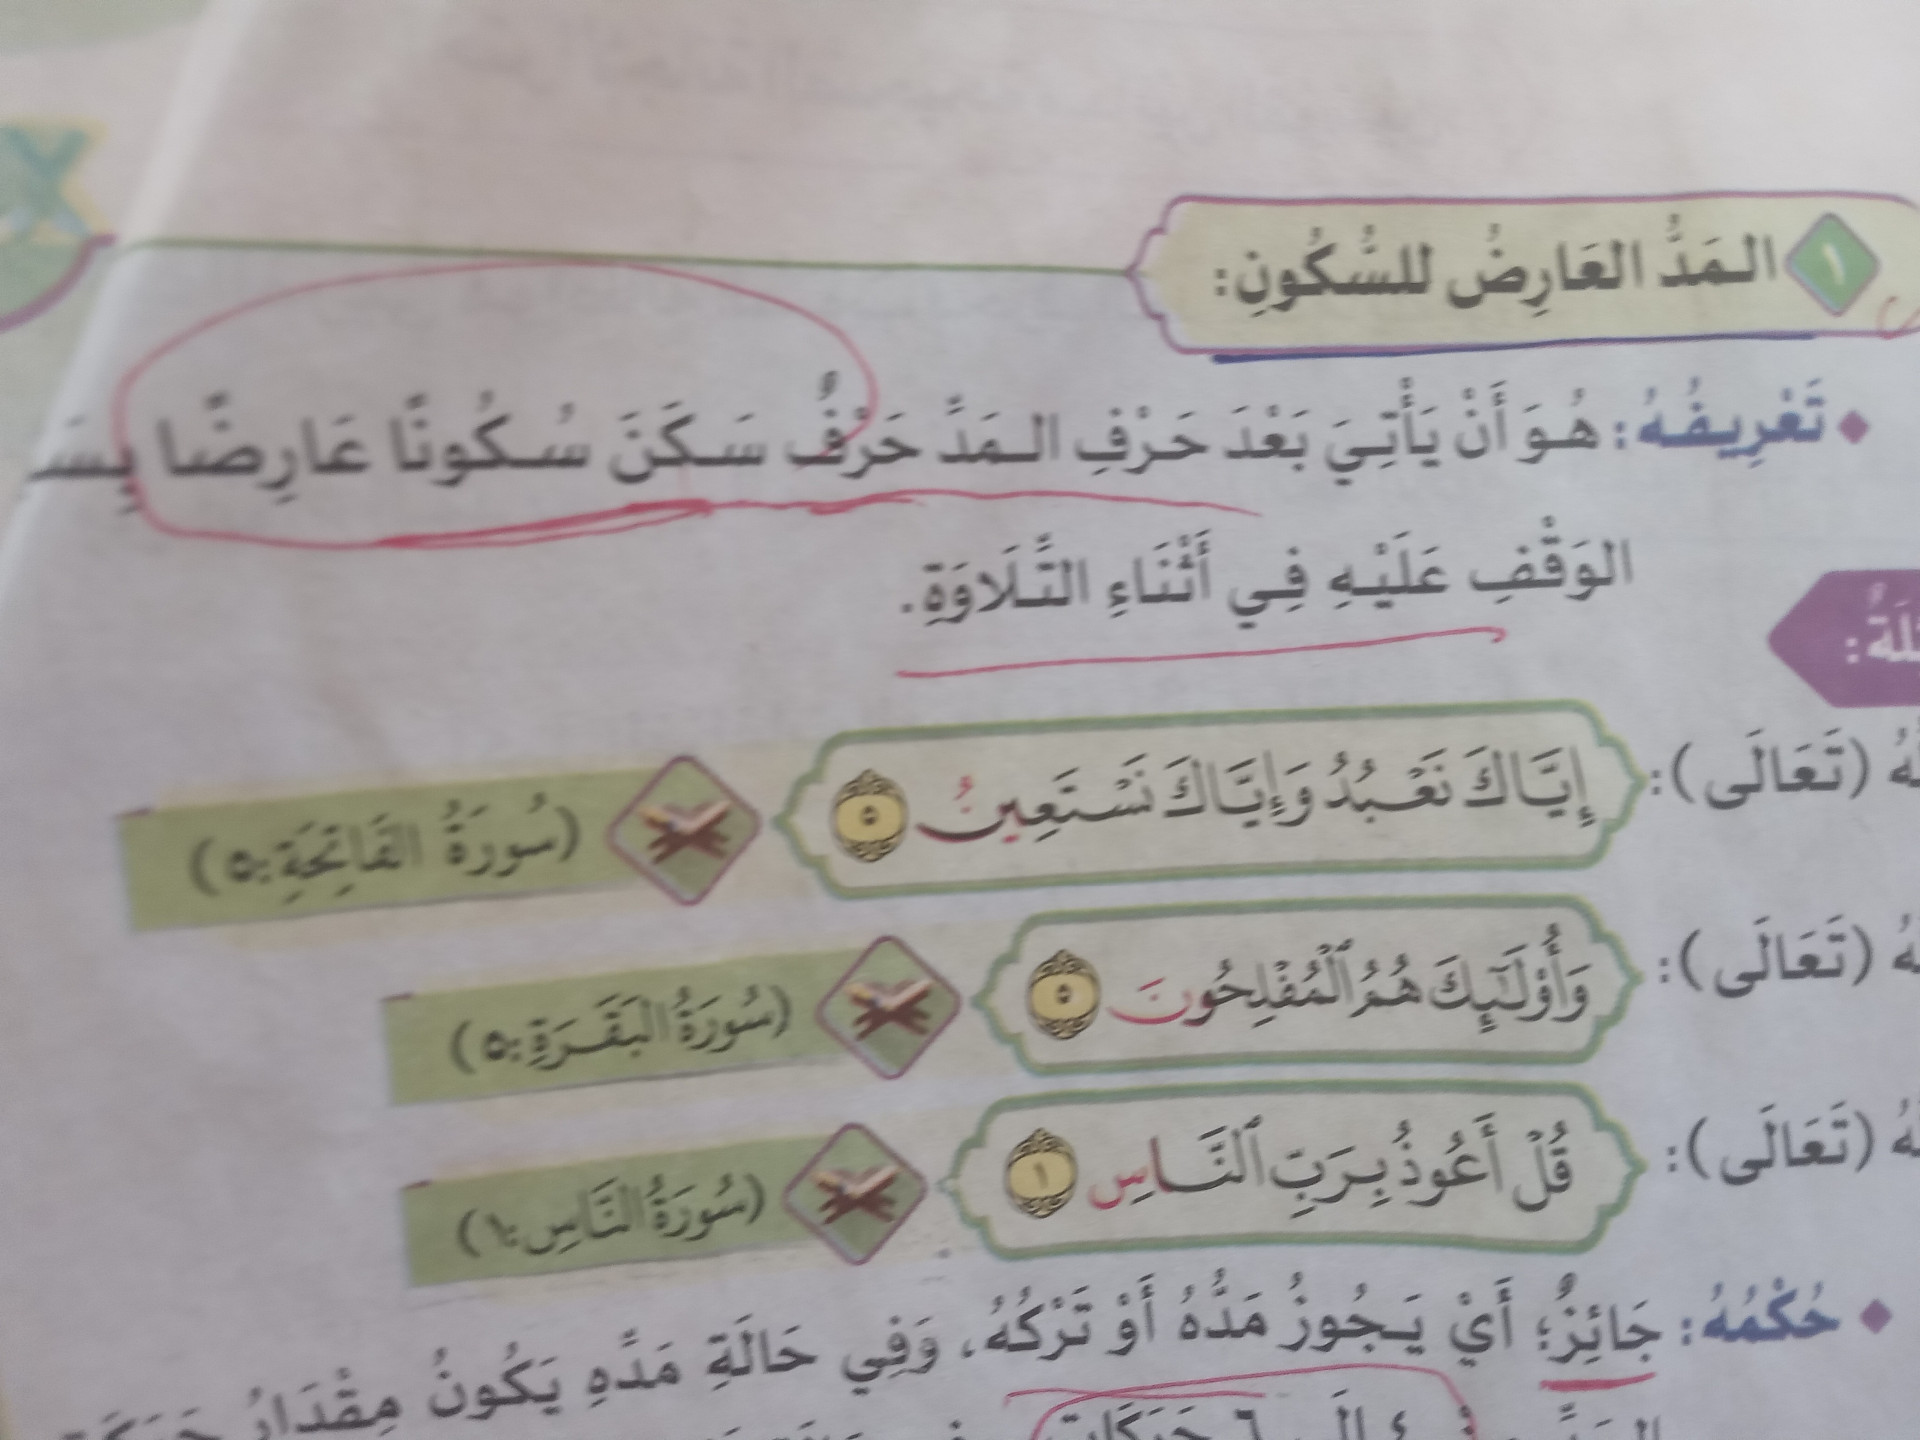 ١ الـمَدُّ العَارِضُ للسُّكُونِ:
تَعْرِيفُهُ: هُوَ أَنْ يَأْتِيَ بَعْدَ حَرْفِ الـمَدِّ حَرْفٌ سَكَنَ سُكُونًا عَارِضًا
الوَقْفِ عَلَيْهِ فِي أَثْنَاءِ التِّلَاوَةِ.
(تَعَالَى): إِيَّاكَ نَعْبُدُ وَإِيَّاكَ نَسْتَعِينُ ٥ (سُورَةُ الفَاتِحَةِ:٥)
(تَعَالَى): وَأُوْلَٰٓئِكَ هُمُ ٱلْمُفْلِحُونَ ٥ (سُورَةُ البَقَرَةِ:٥)
(تَعَالَى): قُلْ أَعُوذُ بِرَبِّ ٱلنَّاسِ ١ (سُورَةُ النَّاسِ:١)
حُكْمُهُ: جَائِزٌ؛ أَيْ يَجُوزُ مَدُّهُ أَوْ تَرْكُهُ، وَفِي حَالَةِ مَدِّهِ يَكُونُ مِقْدَارُ
٤ إِلَى ٦ حَرَكَات